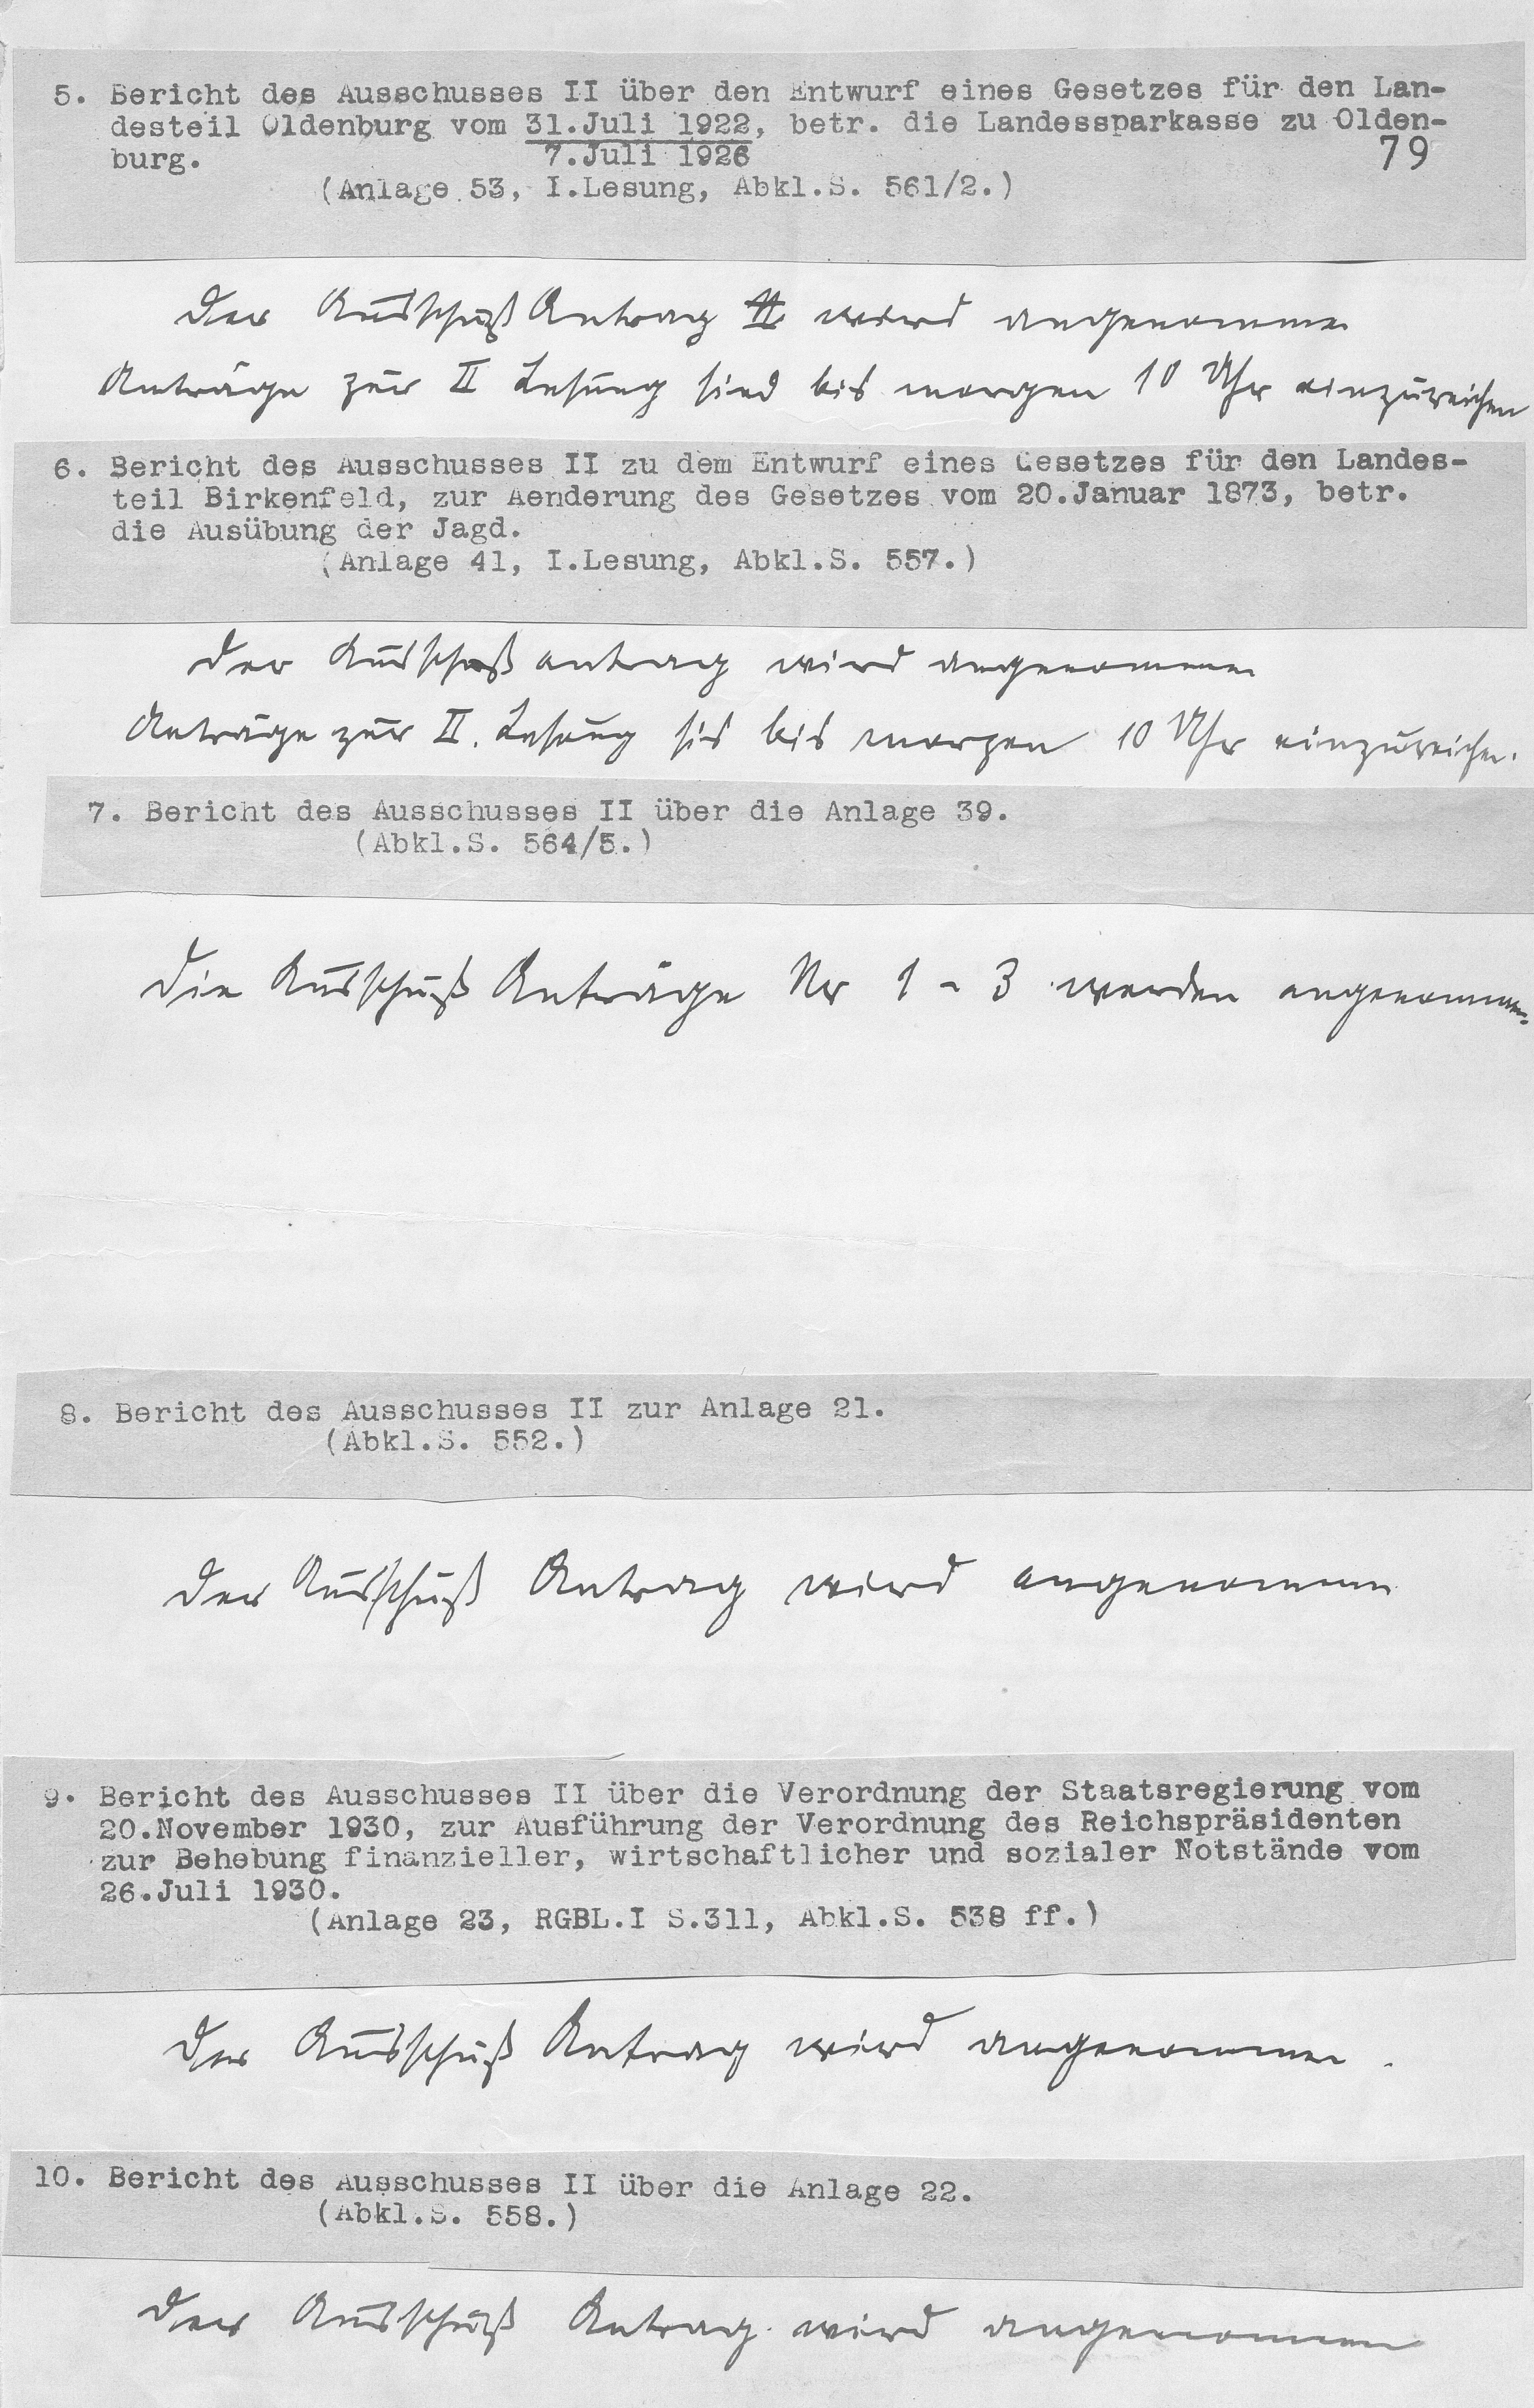 5. Bericht des Ausschusses II über den Entwurf eines Gesetzes für den Lan-
desteil Oldenburg vom 31.Juli 1922, betr. die Landessparkasse zu Olden-
burg. 7.Juli 1926 79
(Anlage 53, I.Lesung, Abkl.S. 561/2.)
Der Ausschuß Antrag wird angenommen
Anträge zur II Lesung sind bis morgen 10 Uhr einzureichen
6. Bericht des Ausschusses II zu dem Entwurf eines Gesetzes für den Landes-
teil Birkenfeld, zur Aenderung des Gesetzes vom 20.Januar 1873, betr.
die Ausübung der Jagd.
(Anlage 41, I.Lesung, Abkl.S. 557.)
Der Ausschußantrag wird angenommen
Anträge zur II. Lesung sid bis morgen 10 Uhr einzureichen.
7. Bericht des Ausschusses II über die Anlage 39.
(Abkl.S. 564/5.)
Die Ausschuß Anträge Nr 1 - 3 werden angenommen.
8. Bericht des Ausschusses II zur Anlage 21.
(Abkl.S. 552.)
Der Ausschuß Antrag wird angenommen
9. Bericht des Ausschusses II über die Verordnung der Staatsregierung vom
20.November 1930, zur Ausführung der Verordnung des Reichspräsidenten
zur Behebung finanzieller, wirtschaftlicher und sozialer Notstände vom
26.Juli 1930.
(Anlage 23, RGBL.I S.311, Abkl.S. 538 ff.)
Der Ausschuß Antrag wird angenommen.
10. Bericht des Ausschusses II über die Anlage 22.
(Abkl.S. 558.)
Der Ausschuß Antrag wird angenommen